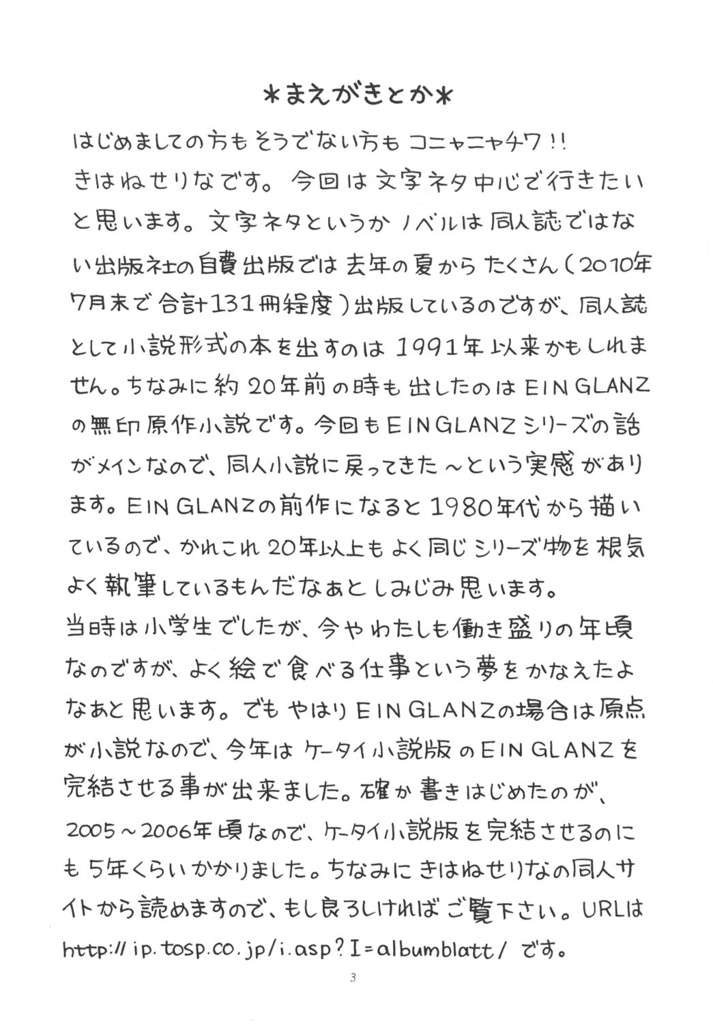 ＊まえがきとか＊
はじめましての方もそうでない方も コニャニャチワ!!
きはねせりなです。今回は文字ネタ中心で行きたい
と思います。文字ネタというか ノベルは同人誌ではな
い出版社の自費出版では去年の夏から たくさん(2010年
7月末で合計131冊程度)出版しているのですが、同人誌
として小説形式の本を出すのは 1991年以来かもしれま
せん。ちなみに約20年前の時も出したのは EIN GLANZ
の無印原作小説です。今回も EIN GLANZ シリーズの話
がメインなので、同人小説に戻ってきた～という実感があり
ます。EIN GLANZの前作になると 1980年代から描い
ているので、かれこれ 20年以上もよく同じシリーズ物を根気
よく執筆しているもんだなぁと しみじみ思います。
当時は小学生でしたが、今や わたしも働き盛りの年頃
なのですが、よく絵で食べる仕事という夢をかなえたよ
なぁと思います。でも やはり EIN GLANZの場合は原点
が小説なので、今年は ケータイ小説版の EIN GLANZを
完結させる事が出来ました。確か書きはじめたのが、
2005～2006年頃なので、ケータイ小説版を完結させるのに
も 5年くらいかかりました。ちなみに きはねせりなの同人サ
イトから読めますので、もし良ろしければ ご覧下さい。URLは
http://ip.tosp.co.jp/i.asp?I=albumblatt/ です。
3